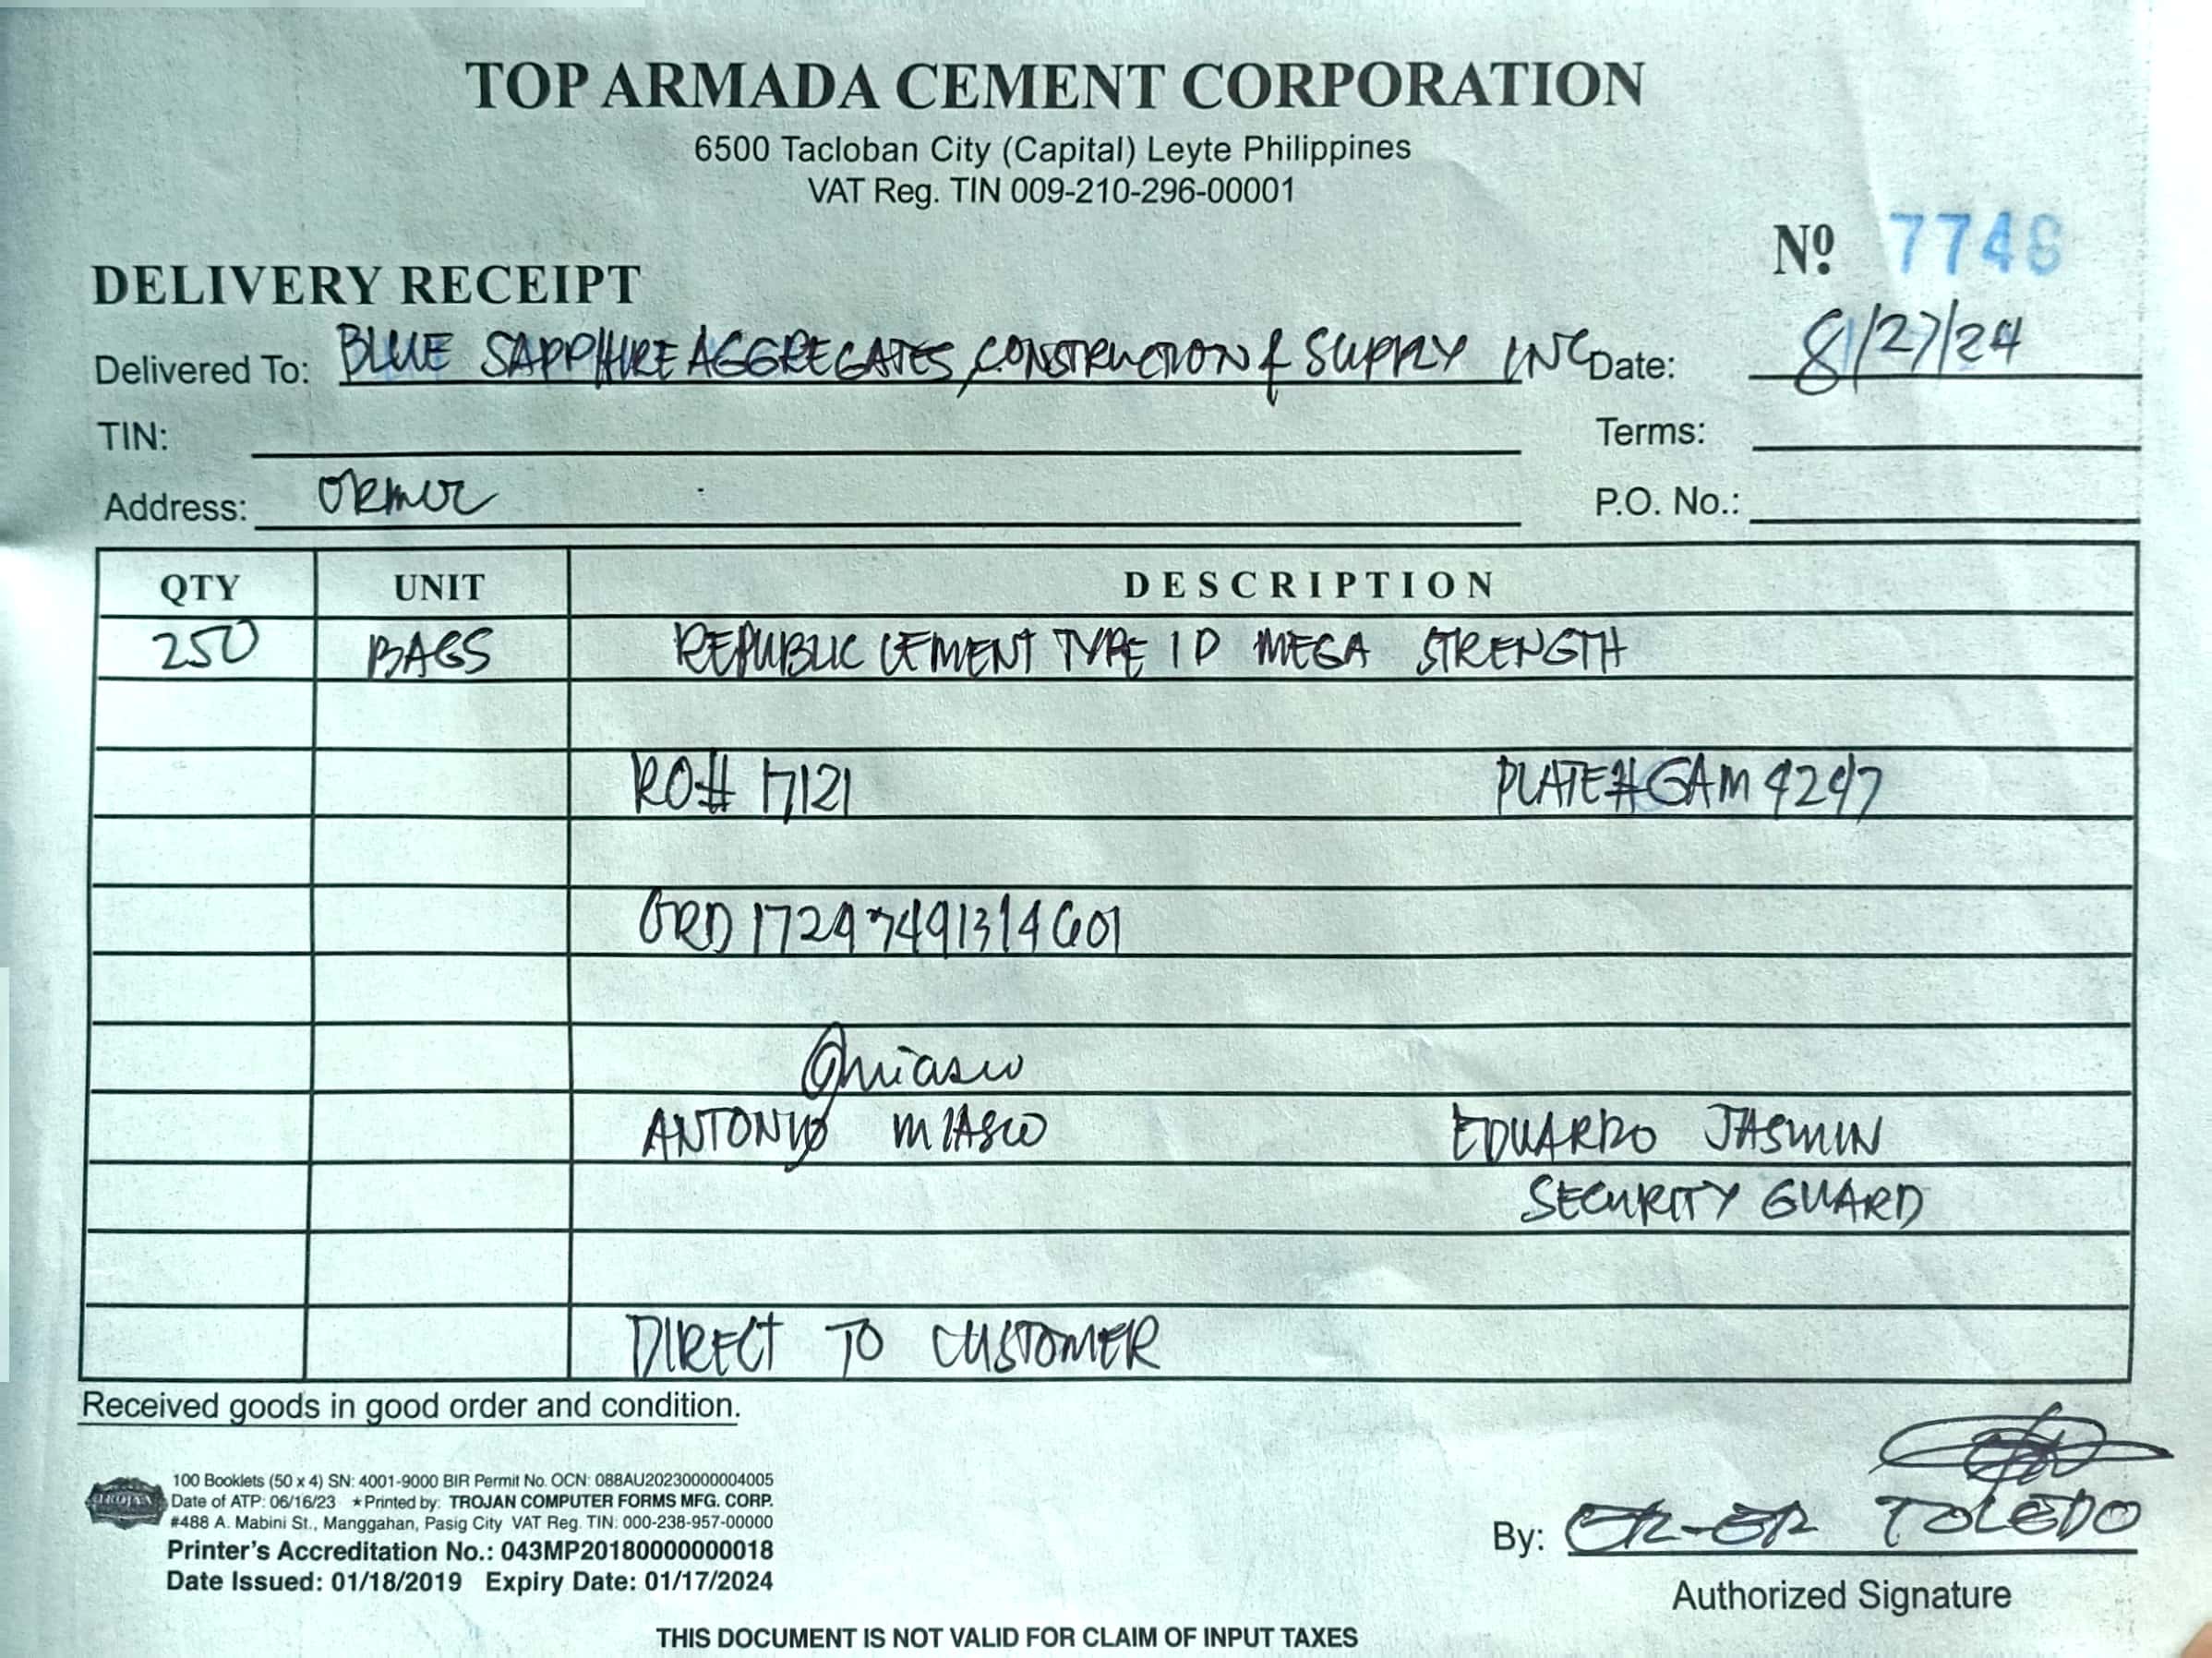 TOP ARMADA CEMENT CORPORATION
6500 Tacloban City (Capital) Leyte Philippines
VAT Reg. TIN 009-210-296-00001
Nº 7746
DELIVERY RECEIPT
Delivered To: BLUE SAPPHIRE AGGREGATES, CONSTRUCTION & SUPPLY INC Date: 8/27/24
TIN: Terms:
Address: ORMOC P.O. No.:
QTY UNIT DESCRIPTION
250 BAGS REPUBLIC CEMENT TYPE 1P MEGA STRENGTH
RO# 17121 PLATE# GAM 4247
ORD 1724749131460 1
ANTONIO MIASCO EDUARDO JASMIN
SECURITY GUARD
DIRECT TO CUSTOMER
Received goods in good order and condition.
TROJAN
100 Booklets (50 x 4) SN: 4001-9000 BIR Permit No. OCN: 088AU20230000004005
Date of ATP: 06/16/23 ★Printed by: TROJAN COMPUTER FORMS MFG. CORP.
#488 A. Mabini St., Manggahan, Pasig City VAT Reg. TIN: 000-238-957-00000
Printer's Accreditation No.: 043MP20180000000018
Date Issued: 01/18/2019 Expiry Date: 01/17/2024
By: ER-ER TOLEDO
Authorized Signature
THIS DOCUMENT IS NOT VALID FOR CLAIM OF INPUT TAXES